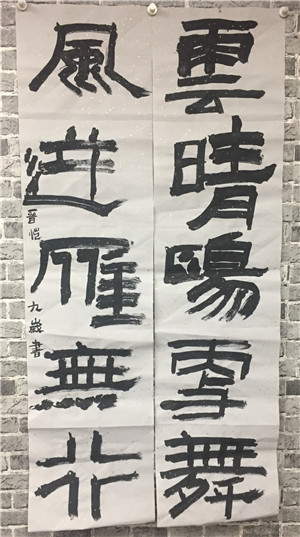 雲晴鷗更舞
風逆雁無行
晉愷 九歲書